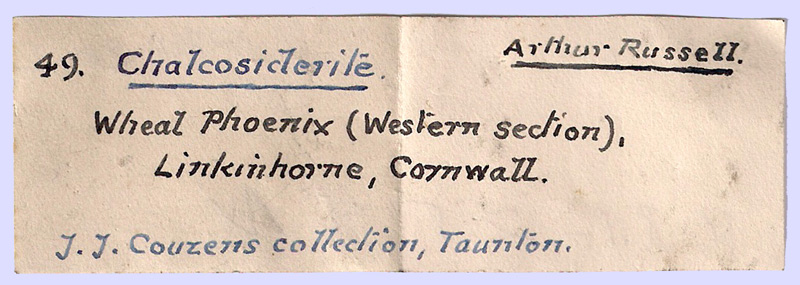 49. Chalcosiderite.
Arthur Russell.
Wheal Phoenix (Western section),
Linkinhorne, Cornwall.
J. J. Couzens collection, Taunton.